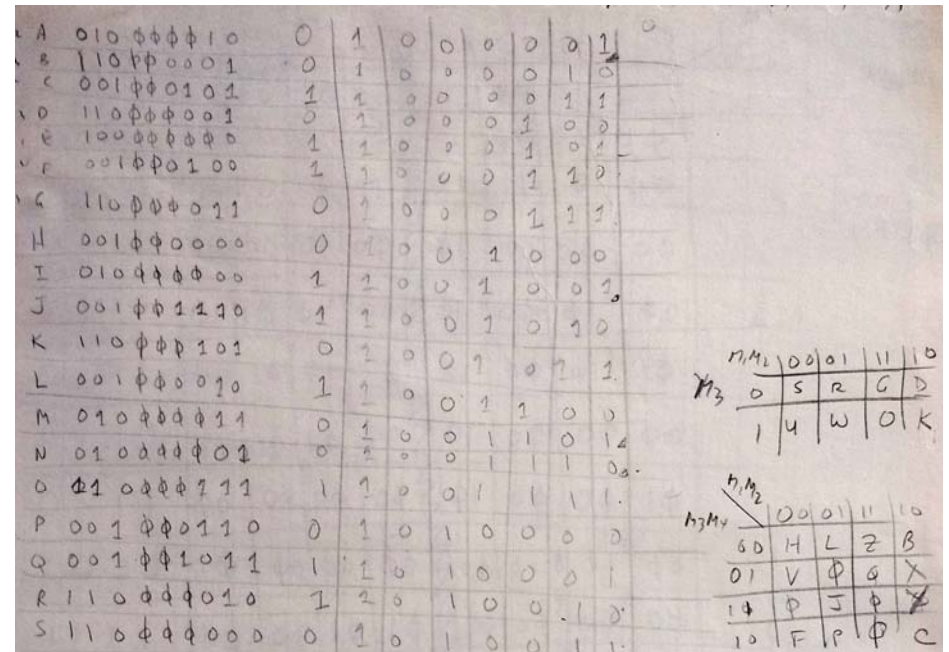 A 010 ϕϕϕϕ10 0 1 0 0 0 0 0 1
B 110ϕϕ0001 0 1 0 0 0 0 1 0
C 001ϕϕ0101 1 1 0 0 0 0 1 1
D 110ϕϕϕ001 0 1 0 0 0 1 0 0
E 100ϕϕϕϕϕ0 1 1 0 0 0 1 0 1
F 001ϕϕ0100 1 1 0 0 0 1 1 0
G 110ϕϕϕ011 0 1 0 0 0 1 1 1
H 001ϕϕ0000 0 1 0 0 1 0 0 0
I 010ϕϕϕϕ00 1 1 0 0 1 0 0 1
J 001ϕϕ1110 1 1 0 0 1 0 1 0
K 110ϕϕϕ101 0 1 0 0 1 0 1 1
L 001ϕϕ0010 1 1 0 0 1 1 0 0
M 010ϕϕϕϕ11 0 1 0 0 1 1 0 1
N 010ϕϕϕϕ01 0 1 0 0 1 1 1 0
O 110ϕϕϕ111 1 1 0 0 1 1 1 1
P 001ϕϕ0110 0 1 0 1 0 0 0 0
Q 001ϕϕ1011 1 1 0 1 0 0 0 1
R 110ϕϕϕ010 1 1 0 1 0 0 1 0
S 110ϕϕϕ000 0 1 0 1 0 0 1 1
M1M2 00 01 11 10
M3 0 S R G D
1 U W O K
M1M2
M3M4 00 01 11 10
00 H L Z B
01 V ϕ Q X
ϕ J ϕ
10 F P ϕ C